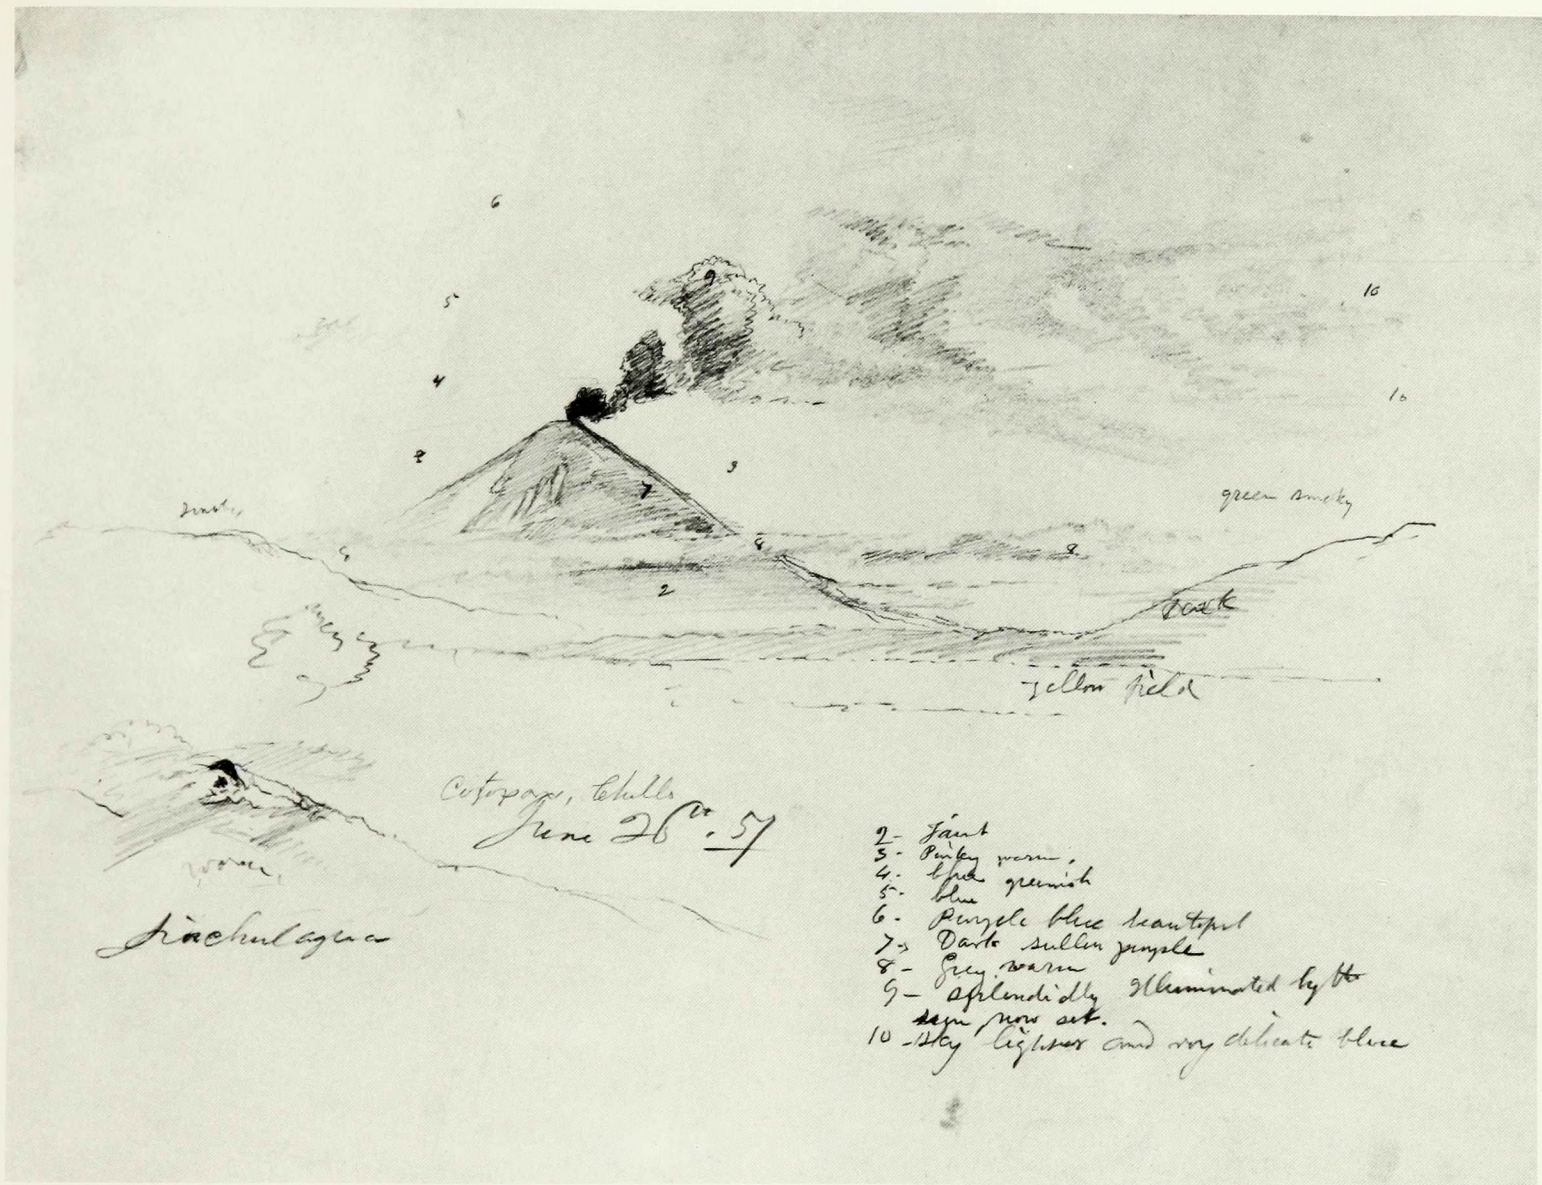 6
5
10
9
4
10
4
3
7
green smoky
8
8
2
dark
yellow field
Cotopaxi, Chillo
June 26th. 57
warm
Sinchulagua
2- faint
3- Pinky warm.
4- blue greenish
5- blue
6- Purple blue beautiful
7- Dark sullen purple
8- Grey. warm
9- splendidly illuminated by the
sun now set.
10 -Sky lighter and very delicate blue